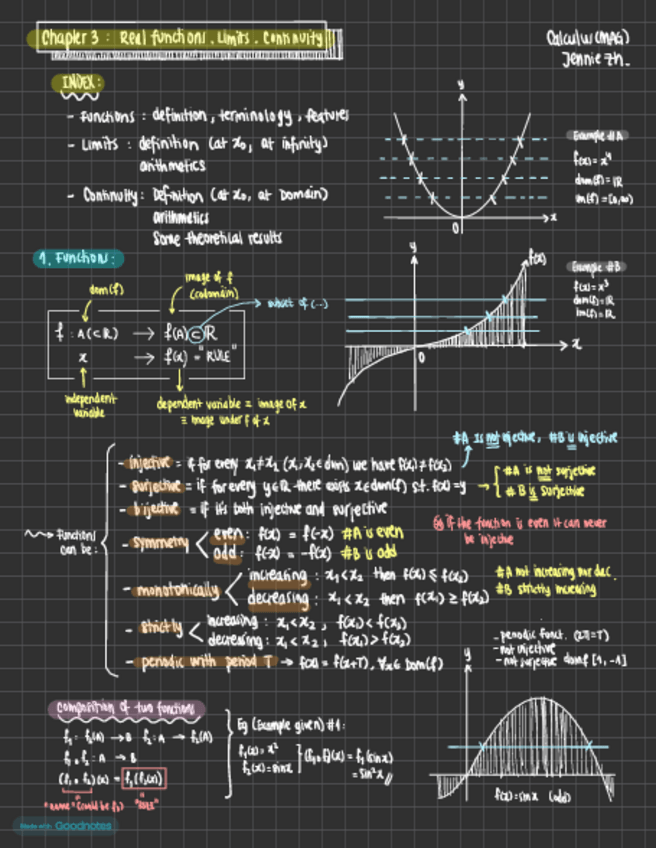 Chapter 3 : Real functions. Limits. Continuity
Calculus (MAG)
Jennie Zh.
INDEX:
- Functions : definition, terminology, features
- Limits : definition (at x₀, at infinity)
arithmetics
- Continuity: Definition (at x₀, at Domain)
arithmetics
Some theoretical results
y
x
0
Example #A
f(x) = x⁴
dom(f) = ℝ
im(f) = [0,∞)
1. Functions:
dom(f)
image of f
(codomain)
subset of (...)
f : A(⊂ℝ) → f(A)⊂ℝ
x → f(x) = "RULE"
independent
variable
dependent variable = image of x
= image under f of x
y
f(x)
x
0
Example #B
f(x) = x³
dom(f) = ℝ
im(f) = ℝ
#A is not injective, #B is injective
Functions
can be:
- injective = if for every x₁≠x₂ (x₁,x₂∈dom) we have f(x₁)≠f(x₂)
- surjective = if for every y∈ℝ there exists x∈dom(f) s.t. f(x)=y
→ #A is not surjective
# B is surjective
- bijective = if it's both injective and surjective
- symmetry < even: f(x) = f(-x) #A is even
odd: f(-x) = -f(x) #B is odd
if the function is even it can never
be injective
- monotonically < increasing : x₁<x₂ then f(x₁) ≤ f(x₂)
decreasing : x₁<x₂ then f(x₁) ≥ f(x₂)
#A not increasing nor dec.
#B strictly increasing
- strictly < increasing : x₁<x₂, f(x₁)<f(x₂)
decreasing: x₁<x₂, f(x₁)>f(x₂)
- periodic with period T → f(x) = f(x+T), ∀x∈Dom(f)
- periodic funct. (2π=T)
- not injective
- not surjective dom f [1,-1]
y
x
f(x)=sin x (odd)
composition of two functions
f₁: f₂(A) → B f₂: A → f₂(A)
f₁ ∘ f₂ : A → B
(f₁ ∘ f₂)(x) = f₁(f₂(x))
"name" (could be f₃) "RULE"
Eg (Example given) #1:
f₁(x) = x²
f₂(x) = sin x
(f₁∘f₂)(x) = f₁(sin x)
= sin²x //
Made with Goodnotes